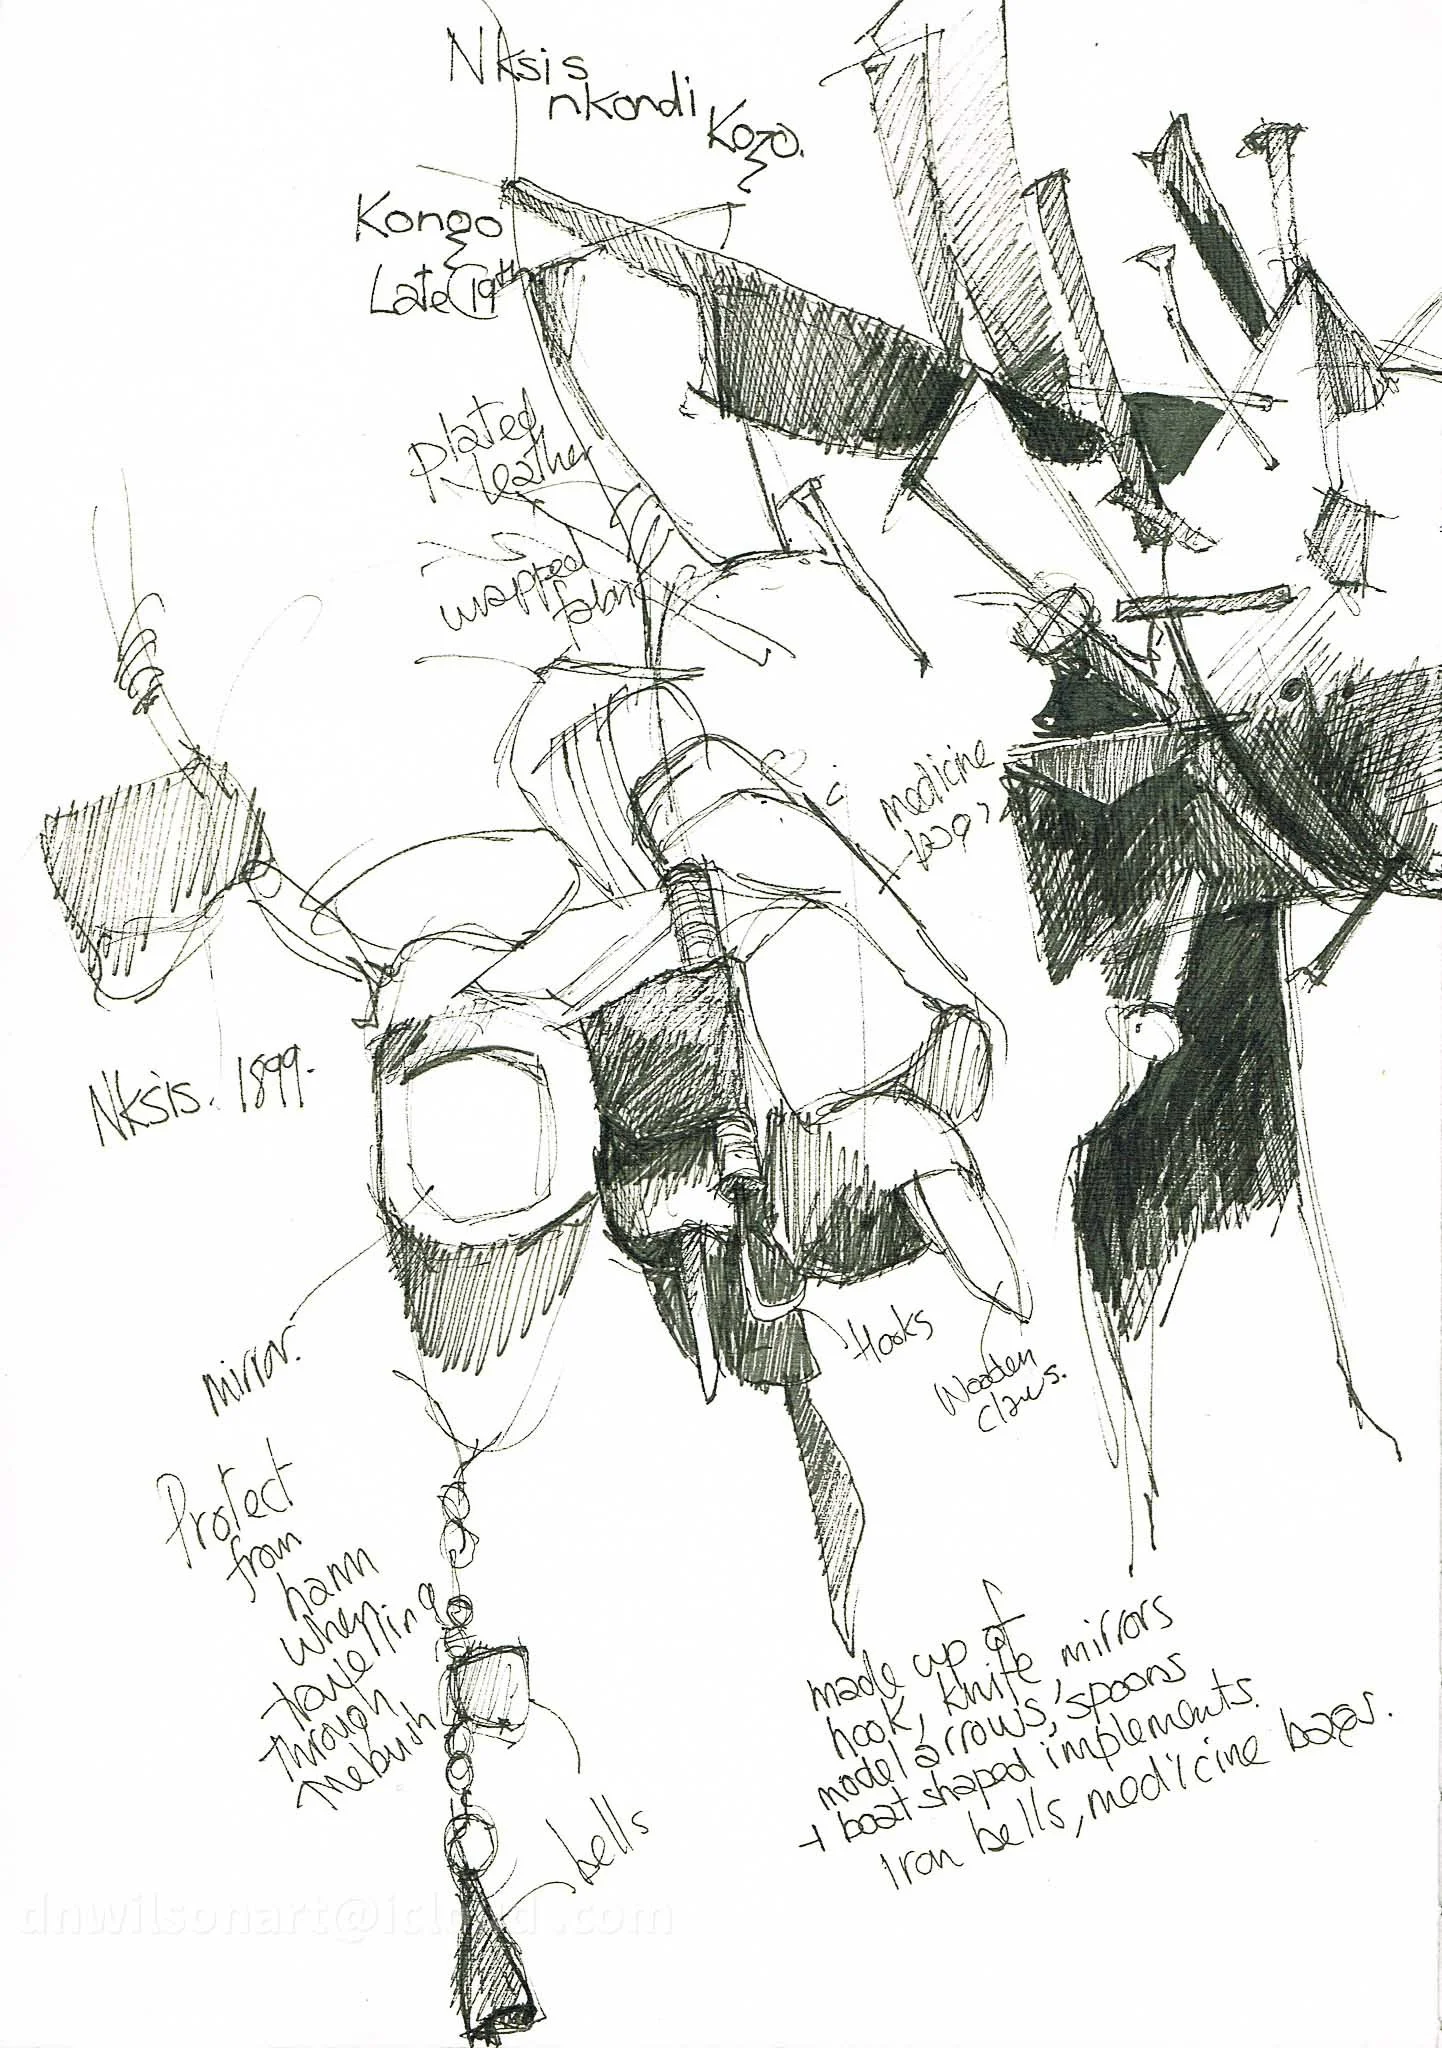 Nksis
nkondi
Kozo.
Kongo
Late C19th
plated
leather
wrapped
fabric
medicine
bags
Nksis. 1899.
mirror.
Hooks
Wooden
claws.
Protect
from
harm
when
travelling
through
the bush
made up of
hook, knife, mirrors
model arrows, spoons
+ boat shaped implements.
Iron bells, medicine bags.
bells
dnwilsonart@icloud.com